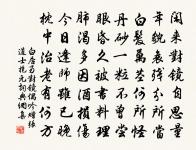 閑來對鏡自思量
年貌衰殘分所當
白髮萬莖何所怪
丹砂一粒不曾嘗
眼昏久被書料理
肺渴多因酒損傷
今日逢師雖已晚
枕中治老有何方
白居易對鏡偶吟贈張
道士抱元詞典網集